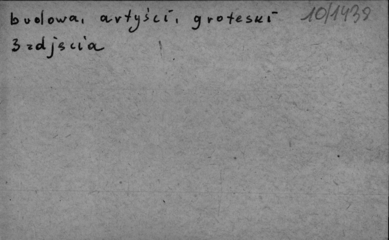 budowa, artyści, groteski 10/1438
3 zdjęcia